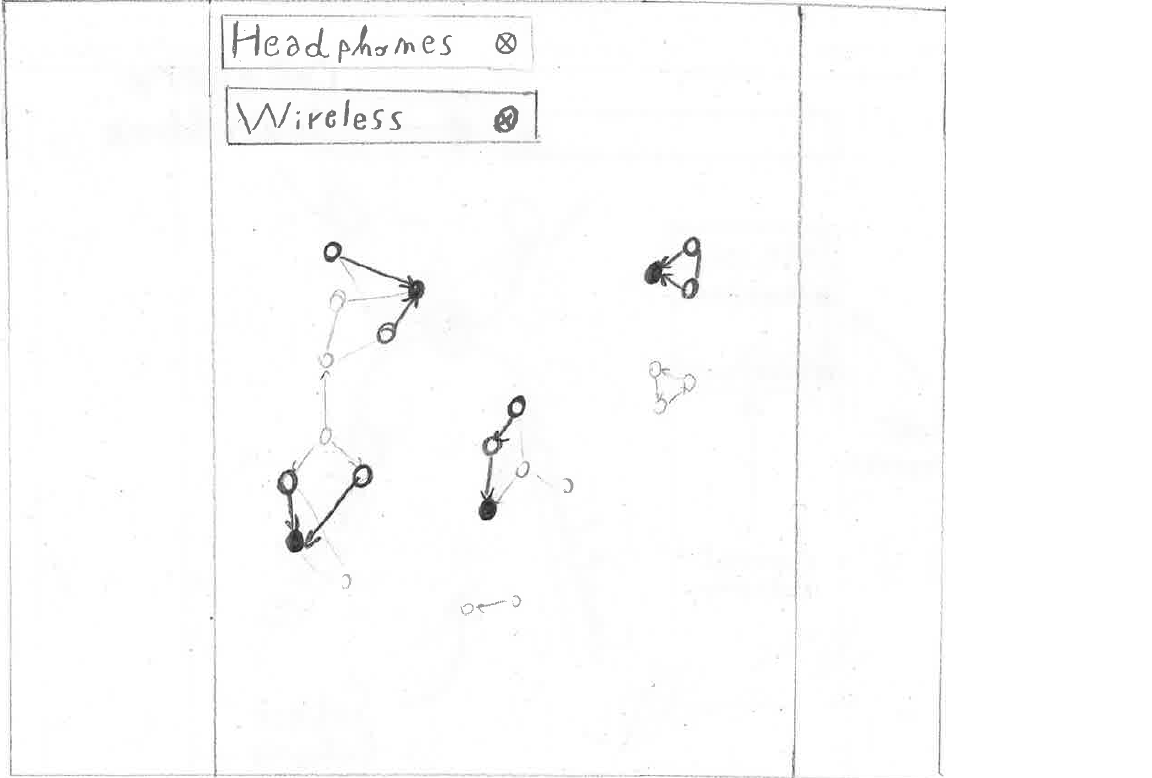 Headphones
Wireless